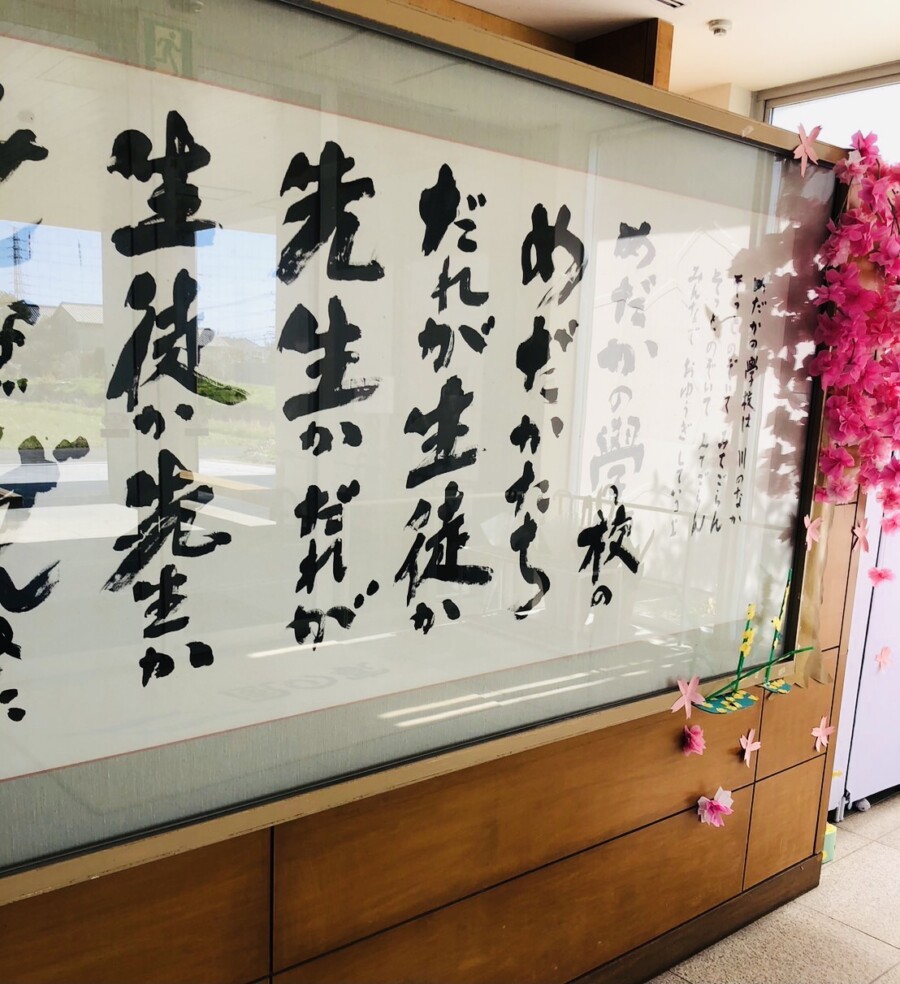 めだかの學校は 川のなか
そっとのぞいて みてごらん
そっとのぞいて みてごらん
みんなで おゆうぎしているよ
めだかの學校の
めだかたち
だれが生徒か
先生かだれが
生徒か先生か